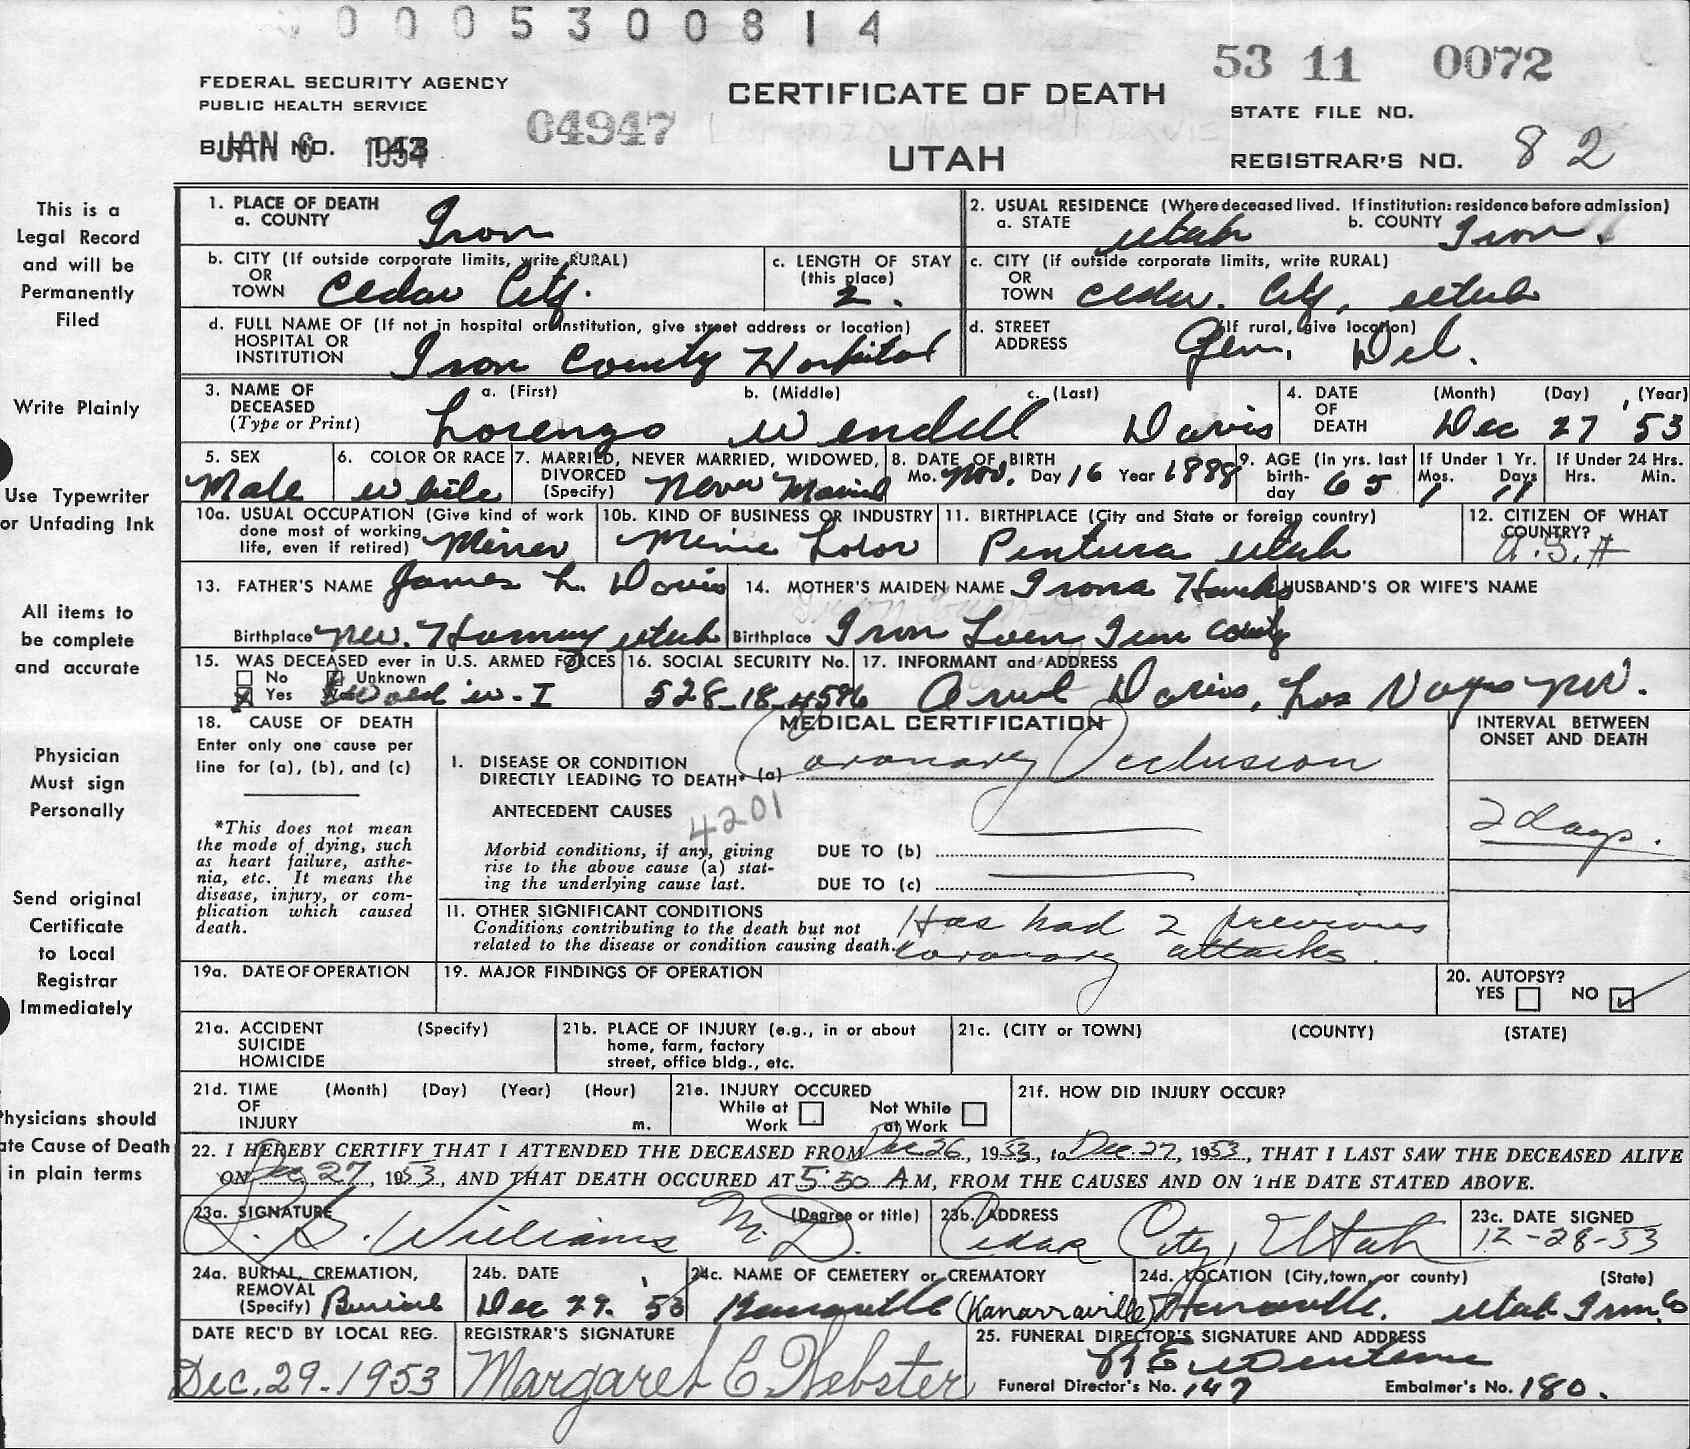 0005300814
53 11 0072
FEDERAL SECURITY AGENCY
PUBLIC HEALTH SERVICE
CERTIFICATE OF DEATH
STATE FILE NO.
04947
BIRTH NO. 143
JAN 6 1954
UTAH
REGISTRAR'S NO. 82
This is a
Legal Record
and will be
Permanently
Filed
Write Plainly
Use Typewriter
or Unfading Ink
All items to
be complete
and accurate
Physician
Must sign
Personally
Send original
Certificate
to Local
Registrar
Immediately
hysicians should
ate Cause of Death
in plain terms
1. PLACE OF DEATH
a. COUNTY Iron
2. USUAL RESIDENCE (Where deceased lived. If institution: residence before admission)
a. STATE Utah b. COUNTY Iron.
b. CITY (If outside corporate limits, write RURAL)
OR
TOWN Cedar City.
c. LENGTH OF STAY
(this place)
2.
c. CITY (if outside corporate limits, write RURAL)
OR
TOWN Cedar. City, Utah
d. FULL NAME OF (If not in hospital or institution, give street address or location)
HOSPITAL OR
INSTITUTION Iron County Hospital
d. STREET (If rural, give location)
ADDRESS Gen. Del.
3. NAME OF a. (First) b. (Middle) c. (Last)
DECEASED
(Type or Print) Lorenzo Wendell Davis
4. DATE (Month) (Day) (Year)
OF
DEATH Dec 27 '53
5. SEX
Male
6. COLOR OR RACE
White
7. MARRIED, NEVER MARRIED, WIDOWED,
DIVORCED
(Specify) Never Married
8. DATE OF BIRTH
Mo. Nov. Day 16 Year 1888
9. AGE (in yrs. last
birth-
day 65
If Under 1 Yr.
Mos. Days
1 11
If Under 24 Hrs.
Hrs. Min.
10a. USUAL OCCUPATION (Give kind of work
done most of working
life, even if retired) Miner
10b. KIND OF BUSINESS OR INDUSTRY
Mine Labor
11. BIRTHPLACE (City and State or foreign country)
Pintura Utah
12. CITIZEN OF WHAT
COUNTRY?
U.S.A
13. FATHER'S NAME James L. Davis
Birthplace New. Harmony Utah
14. MOTHER'S MAIDEN NAME Irona Hawks
Birthplace Iron County
HUSBAND'S OR WIFE'S NAME
15. WAS DECEASED ever in U.S. ARMED FORCES
No Unknown
Yes World W-I
16. SOCIAL SECURITY No.
528-18-4586
17. INFORMANT and ADDRESS
Davis, Las Vegas Nev.
18. CAUSE OF DEATH
Enter only one cause per
line for (a), (b), and (c)
*This does not mean
the mode of dying, such
as heart failure, asthe-
nia, etc. It means the
disease, injury, or com-
plication which caused
death.
MEDICAL CERTIFICATION
I. DISEASE OR CONDITION
DIRECTLY LEADING TO DEATH* (a) Coronary Occlusion
ANTECEDENT CAUSES
4201
Morbid conditions, if any, giving
rise to the above cause (a) stat-
ing the underlying cause last.
DUE TO (b)
DUE TO (c)
INTERVAL BETWEEN
ONSET AND DEATH
2 days.
11. OTHER SIGNIFICANT CONDITIONS
Conditions contributing to the death but not
related to the disease or condition causing death.
Has had 2 previous
coronary attacks.
19a. DATE OF OPERATION
19. MAJOR FINDINGS OF OPERATION
20. AUTOPSY?
YES NO ✓
21a. ACCIDENT (Specify)
SUICIDE
HOMICIDE
21b. PLACE OF INJURY (e.g., in or about
home, farm, factory
street, office bldg., etc.
21c. (CITY or TOWN) (COUNTY) (STATE)
21d. TIME (Month) (Day) (Year) (Hour)
OF
INJURY m.
21e. INJURY OCCURED
While at Not While
Work at Work
21f. HOW DID INJURY OCCUR?
22. I HEREBY CERTIFY THAT I ATTENDED THE DECEASED FROM Dec 26, 1953, to Dec. 27, 1953, THAT I LAST SAW THE DECEASED ALIVE
ON Dec 27, 1953, AND THAT DEATH OCCURED AT 5:30 A M, FROM THE CAUSES AND ON THE DATE STATED ABOVE.
23a. SIGNATURE (Degree or title)
Williams M.D.
23b. ADDRESS
Cedar City, Utah
23c. DATE SIGNED
12-28-53
24a. BURIAL, CREMATION,
REMOVAL
(Specify) Burial
24b. DATE
Dec 29. '53
24c. NAME OF CEMETERY or CREMATORY
(Kanarraville)
24d. LOCATION (City, town, or county) (State)
Utah Iron Co
DATE REC'D BY LOCAL REG.
Dec. 29-1953
REGISTRAR'S SIGNATURE
Margaret C Webster
25. FUNERAL DIRECTOR'S SIGNATURE AND ADDRESS
Funeral Director's No. 147 Embalmer's No. 180.